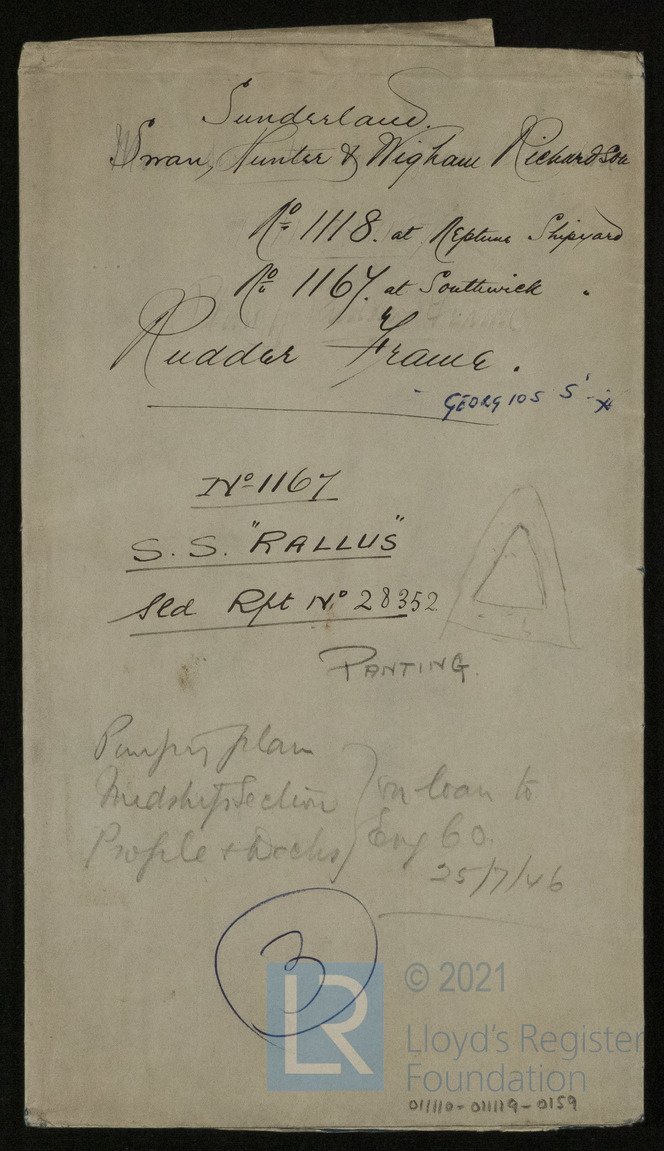 Sunderland.
Swan, Hunter & Wigham Richardson
No 1118. at Neptune Shipyard
No 1167. at Southwick "
Rudder Frame.
GEORGIOS S'
No 1167
S.S. "RALLUS"
Sld Rpt No 28352
PANTING.
Pumping plan
Midship Section } on loan to
Profile & Decks } Eng Co.
25/7/46
3
LR
© 2021
Lloyd's Register
Foundation
011110-011119-0159